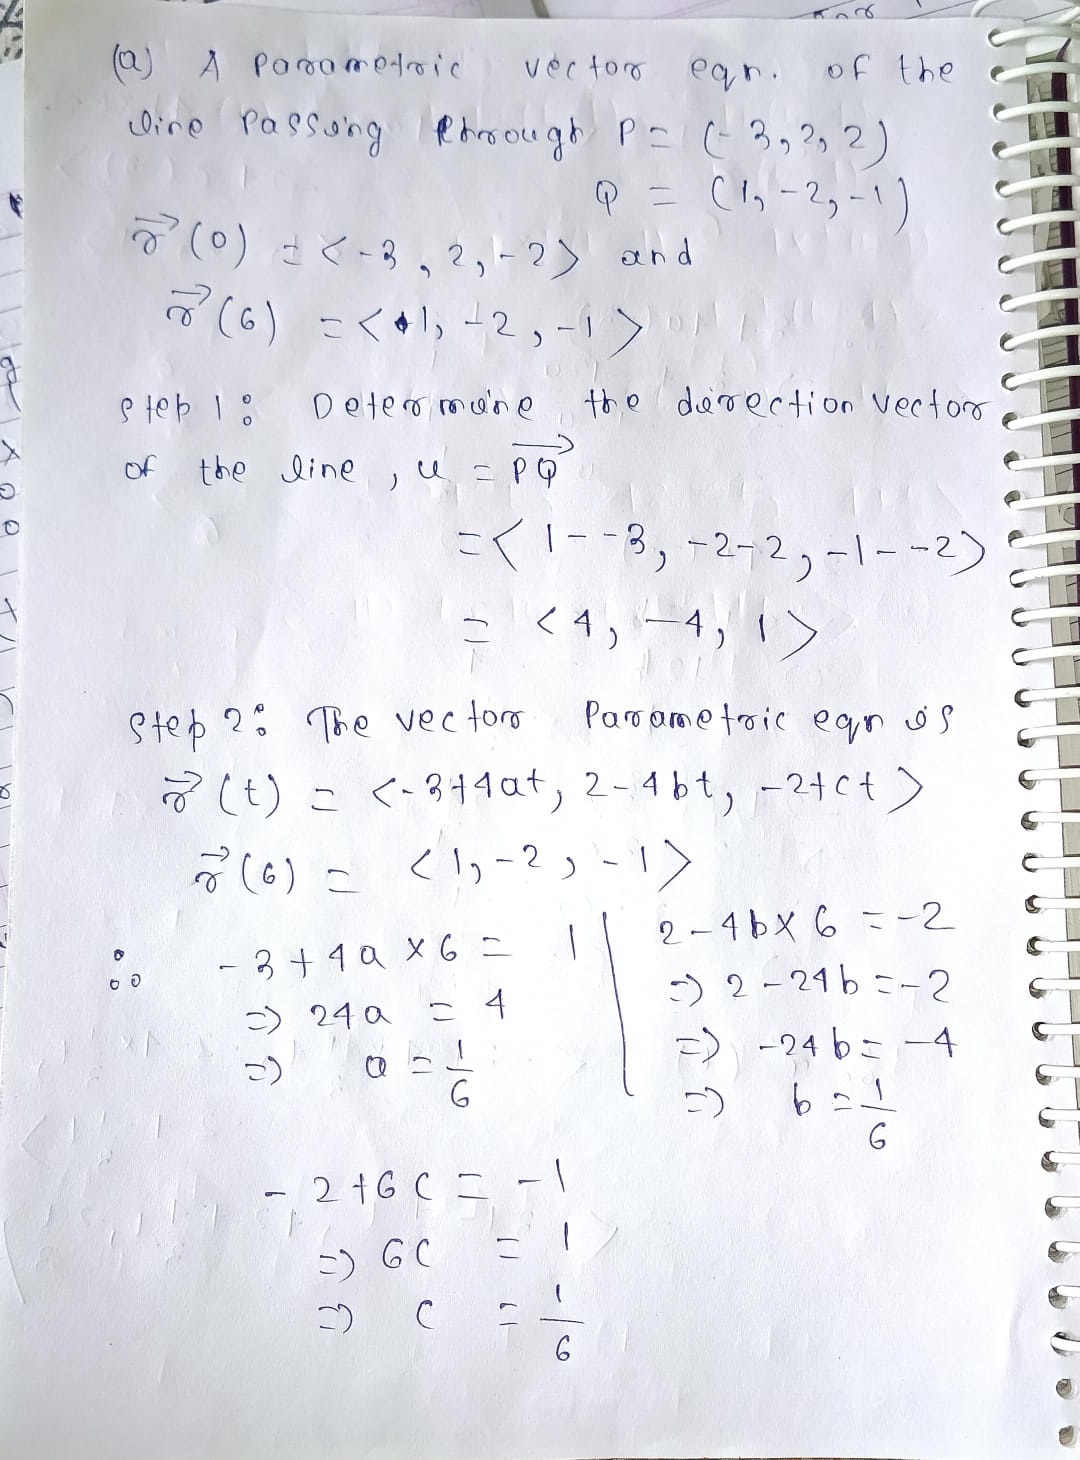 (a) A Parametric vector eqn. of the
line Passing through P = (-3, 2, 2)
Q = (1, -2, -1)
r⃗(0) = <-3, 2, -2> and
r⃗(6) = <1, -2, -1>
Step 1: Determine the direction vector
of the line, u = PQ⃗
= <1--3, -2-2, -1--2>
= <4, -4, 1>
Step 2: The vector Parametric eqn is
r⃗(t) = <-3+4at, 2-4bt, -2+ct>
r⃗(6) = <1, -2, -1>
∴ -3+4a×6 = 1
⇒ 24a = 4
⇒ a = 1/6
2-4b×6 = -2
⇒ 2-24b = -2
⇒ -24b = -4
⇒ b = 1/6
-2+6c = -1
⇒ 6c = 1
⇒ c = 1/6